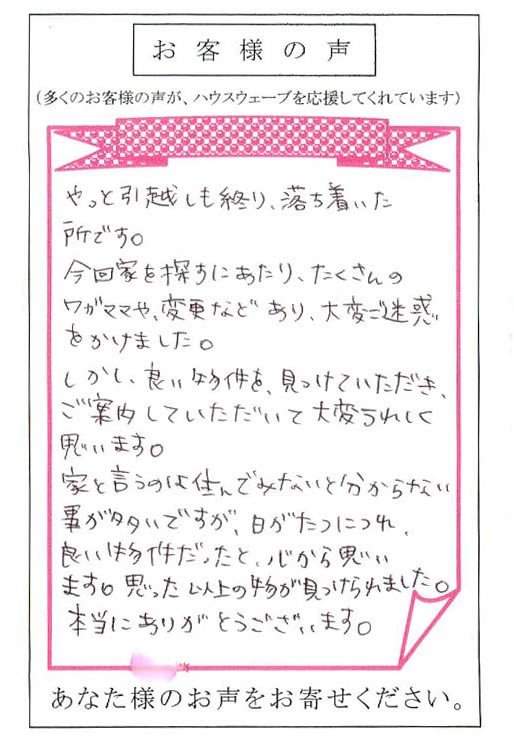 お客様の声
(多くのお客様の声が、ハウスウェーブを応援してくれています)
やっと引越しも終り、落ち着いた
所です。
今回家を探すにあたり、たくさんの
ワガママや、変更など あり、大変ご迷惑
をかけました。
しかし、良い物件を、見つけていただき、
ご案内していただいて大変うれしく
思います。
家と言うのは住んでみないと分からない
事が多いですが、日がたつにつれ、
良い物件だったと、心から思い
ます。思った以上の物が見つけられました。
本当にありがとうございます。
あなた様のお声をお寄せください。